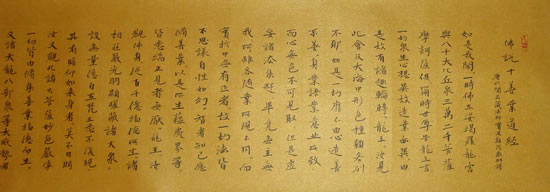 佛說十善業道經
唐于闐三藏法師實叉難陀奉制譯
如是我聞一時佛在娑竭羅龍宮
與八千大比丘眾三萬二千菩薩
摩訶薩俱爾時世尊告龍王言
一切眾生心想異故造業亦異由
是故有諸趣輪轉龍王汝見
此會及大海中形色種類各別
不耶如是一切靡不由心造善
不善身業語業意業所致
而心無色不可見取但是虛
妄諸法集起畢竟無主無
我我所雖各隨業所現不同而
實於中無有作者故一切法皆
不思議自性如幻智者知已應
修善業以是所生蘊處界等
皆悉端正見者無厭龍王汝
觀佛身從百千億福德所生諸
相莊嚴光明顯曜蔽諸大眾
設無量億自在梵王悉不復現
其有瞻仰如來身者莫不目眩
汝又觀此諸大菩薩妙色嚴淨
一切皆由修集善業福德而生
又諸大龍八部眾等大威勢者